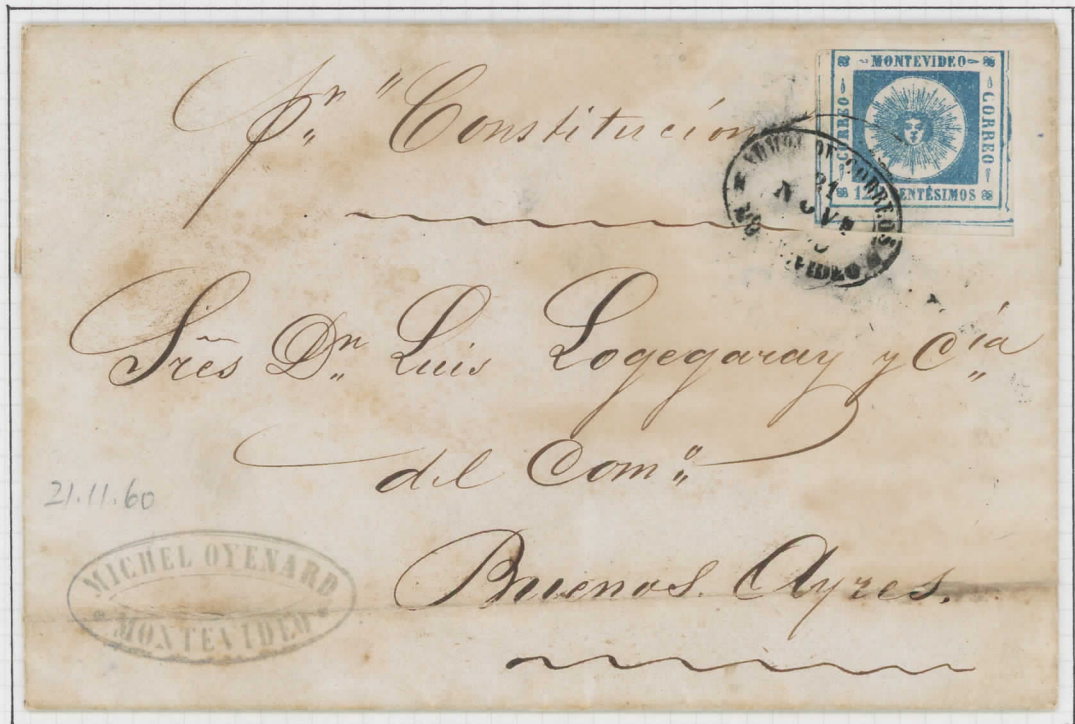 pr "Constitución
MONTEVIDEO
CORREO
CORREO
CENTÉSIMOS
21
NOVE
Sres Dn Luis Logegaray y Cía
del Como
Buenos. Ayres.
21.11.60
MICHEL OYENARD
MONTEVIDEO